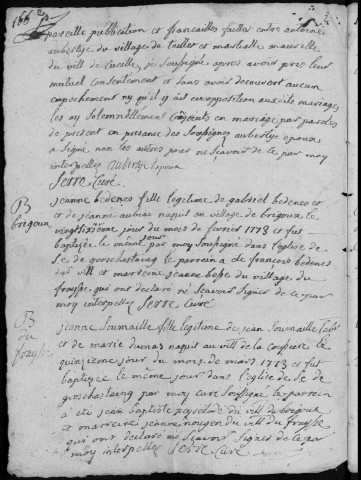 166e
pareille publication et fiancailles faites entre antoine
aubertye du village du taillet et martialle
du vill de je soussigne apres avoir pris leur
mutuel consentement et sans avoir decouvert aucun
empechement ny qu'il y ait eu opposition audits mariage
les ay solemnellement conjoints en mariage par paroles
de present en presance des soussignes aubertye epoux
a signe non les autres pour ne scavoir de ce par moy
interpelles aubertye epoux
Serre Curé
B
brigoux
jeanne bedenes fille legitime de gabriel bedenes et
et de jeanne naquit au village de brigoux le
vingtsixieme jour du mois de fevrier 1773 et fut
baptisée le même jour par moy soussigne dans l'eglise de
St de groschastaing le parrein a été francois bedenes
dud vill et marreine jeanne du village du
fraysse qui ont declare ne scavoir signer de ce par
moy interpelles Serre Curé
B
du
fraysse
jeanne Soumaille fille legitime de jean Soumaille
et de marie dumas naquit au vill de la le
quinzieme jour du mois de mars 1773 et fut
baptisée le même jour dans l'eglise de St de
groschastaing par moy curé soussigné le parrein
a été jean baptiste du vill de brigoux
et marreine jeanne nougen du vill du fraysse
qui ont declare ne scavoir signer de ce par
moy interpelles Serre Curé